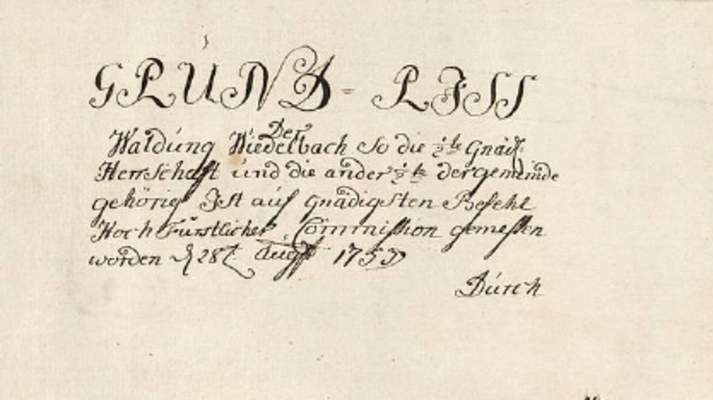 GRUND = RISS
Der
Waldung Wiedelbach So die ½te Gnäd.
Herrschaft und die ander ½te der gemeinde
gehörig Ist auf gnädigsten Befehl
Hoch Fürstlicher Commission gemessen
worden d 28t Augst 1753
Durch